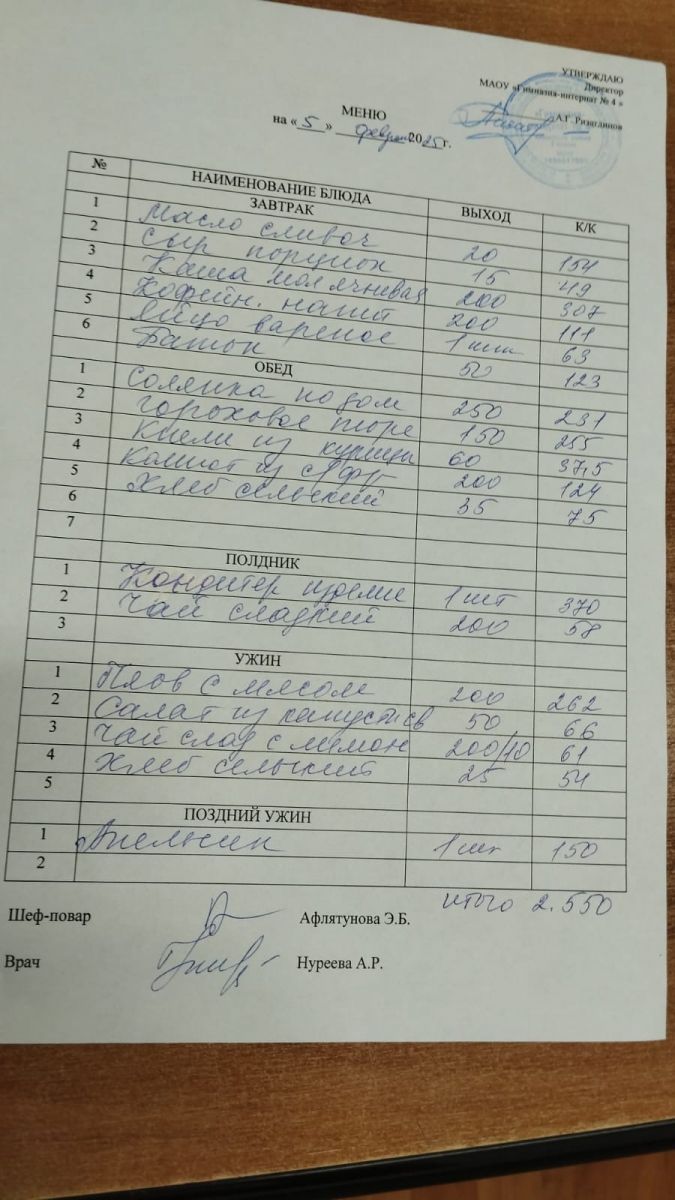 УТВЕРЖДАЮ
Директор
МАОУ «Гимназия-интернат № 4 »
А.Г. Ризатдинов
МЕНЮ
на « 5 » феврал 2025г.
№ НАИМЕНОВАНИЕ БЛЮДА ВЫХОД К/К
ЗАВТРАК
1 Масло сливоч 20 154
2 Сыр порцион 15 49
3 Каша мол ячневая 200 307
4 Кофейн. напит 200 111
5 Яйцо вареное 1 шт 63
6 Батон 50 123
ОБЕД
1 Солянка по дом 250 231
2 Гороховое пюре 150 255
3 Кнели из курицы 60 37,5
4 Компот из с/фр 200 124
5 Хлеб сельский 35 75
6
7
ПОЛДНИК
1 Кондитер изделие 1 шт 370
2 Чай сладкий 200 58
3
УЖИН
1 Плов с мясом 200 262
2 Салат из капусты св 50 66
3 Чай слад с лимон 200/10 61
4 Хлеб сельский 25 54
5
ПОЗДНИЙ УЖИН
1 Апельсин 1 шт 150
2
итого 2.550
Шеф-повар Афлятунова Э.Б.
Врач Нуреева А.Р.